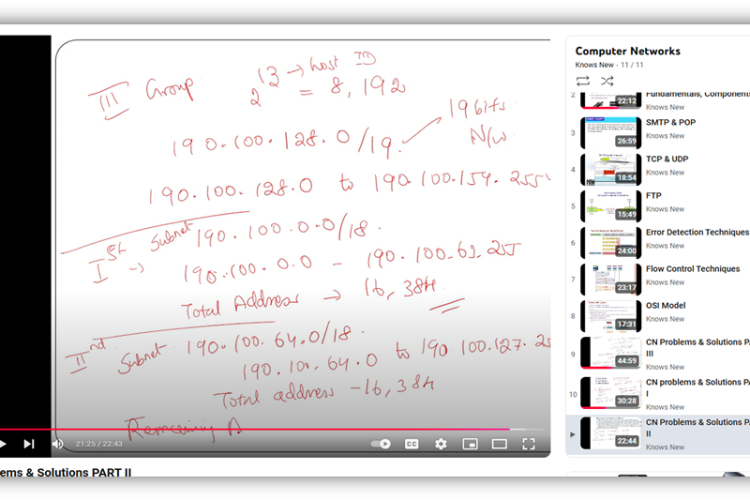 III Group
13 → host ID
2 = 8,192
190.100.128.0/19.
19 bits
N/w.
190.100.128.0 to 190.100.159.255
Ist Subnet 190.100.0.0/18.
→ 190.100.0.0 - 190.100.63.255
Total Address → 16,384
IInd Subnet 190.100.64.0/18.
190.100.64.0 to 190.100.127.25
Total address - 16,384
Remaining A
21:25 / 22:43
CC
ems & Solutions PART II
Computer Networks
Knows New - 11 / 11
2
22:12
Fundamentals, Component
Knows New
3
26:59
SMTP & POP
Knows New
4
18:54
TCP & UDP
Knows New
5
15:49
FTP
Knows New
6
24:00
Error Detection Techniques
Knows New
7
23:17
Flow Control Techniques
Knows New
8
17:31
OSI Model
Knows New
9
44:59
CN Problems & Solutions PA
III
Knows New
10
30:28
CN problems & Solutions Pa
I
Knows New
22:44
CN Problems & Solutions PA
II
Knows New